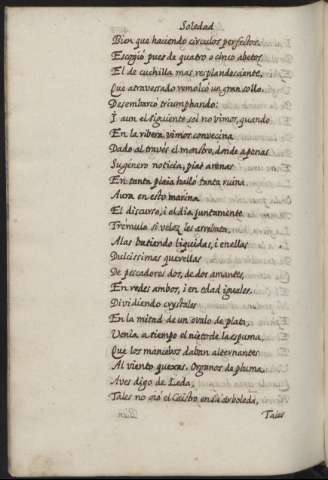 Soledad
Bien que haciendo circulos perfectos,
Escogiò pues de quatro o cinco abetos
El de cuchilla mas resplandeciente,
Que atravessado remolcò un gran sollo.
Desembarcò triumphando:
I aun el siguiente sol no vimos, quando
En la ribera vimos convecina
Dado al travès el monstro, donde apenas
Su genero noticia, pias arenas
En tanta plaia hallò tanta ruina.
Aura en esto marina
El discurso, i el dia juntamente
Tremula si veloz les arrebata,
Alas batiendo liquidas, i en ellas
Dulcissimas querellas
De pescadores dos, de dos amantes,
En redes ambos, i en edad iguales.
Dividiendo crystales
En la mitad de un ovalo de plata,
Venia a tiempo el nieto de la espuma,
Que los mancebos daban alternantes
Al viento quexas. Organos de pluma,
Aves digo de Leda,
Tales no oiò el Caistro en su arboleda,
Tales